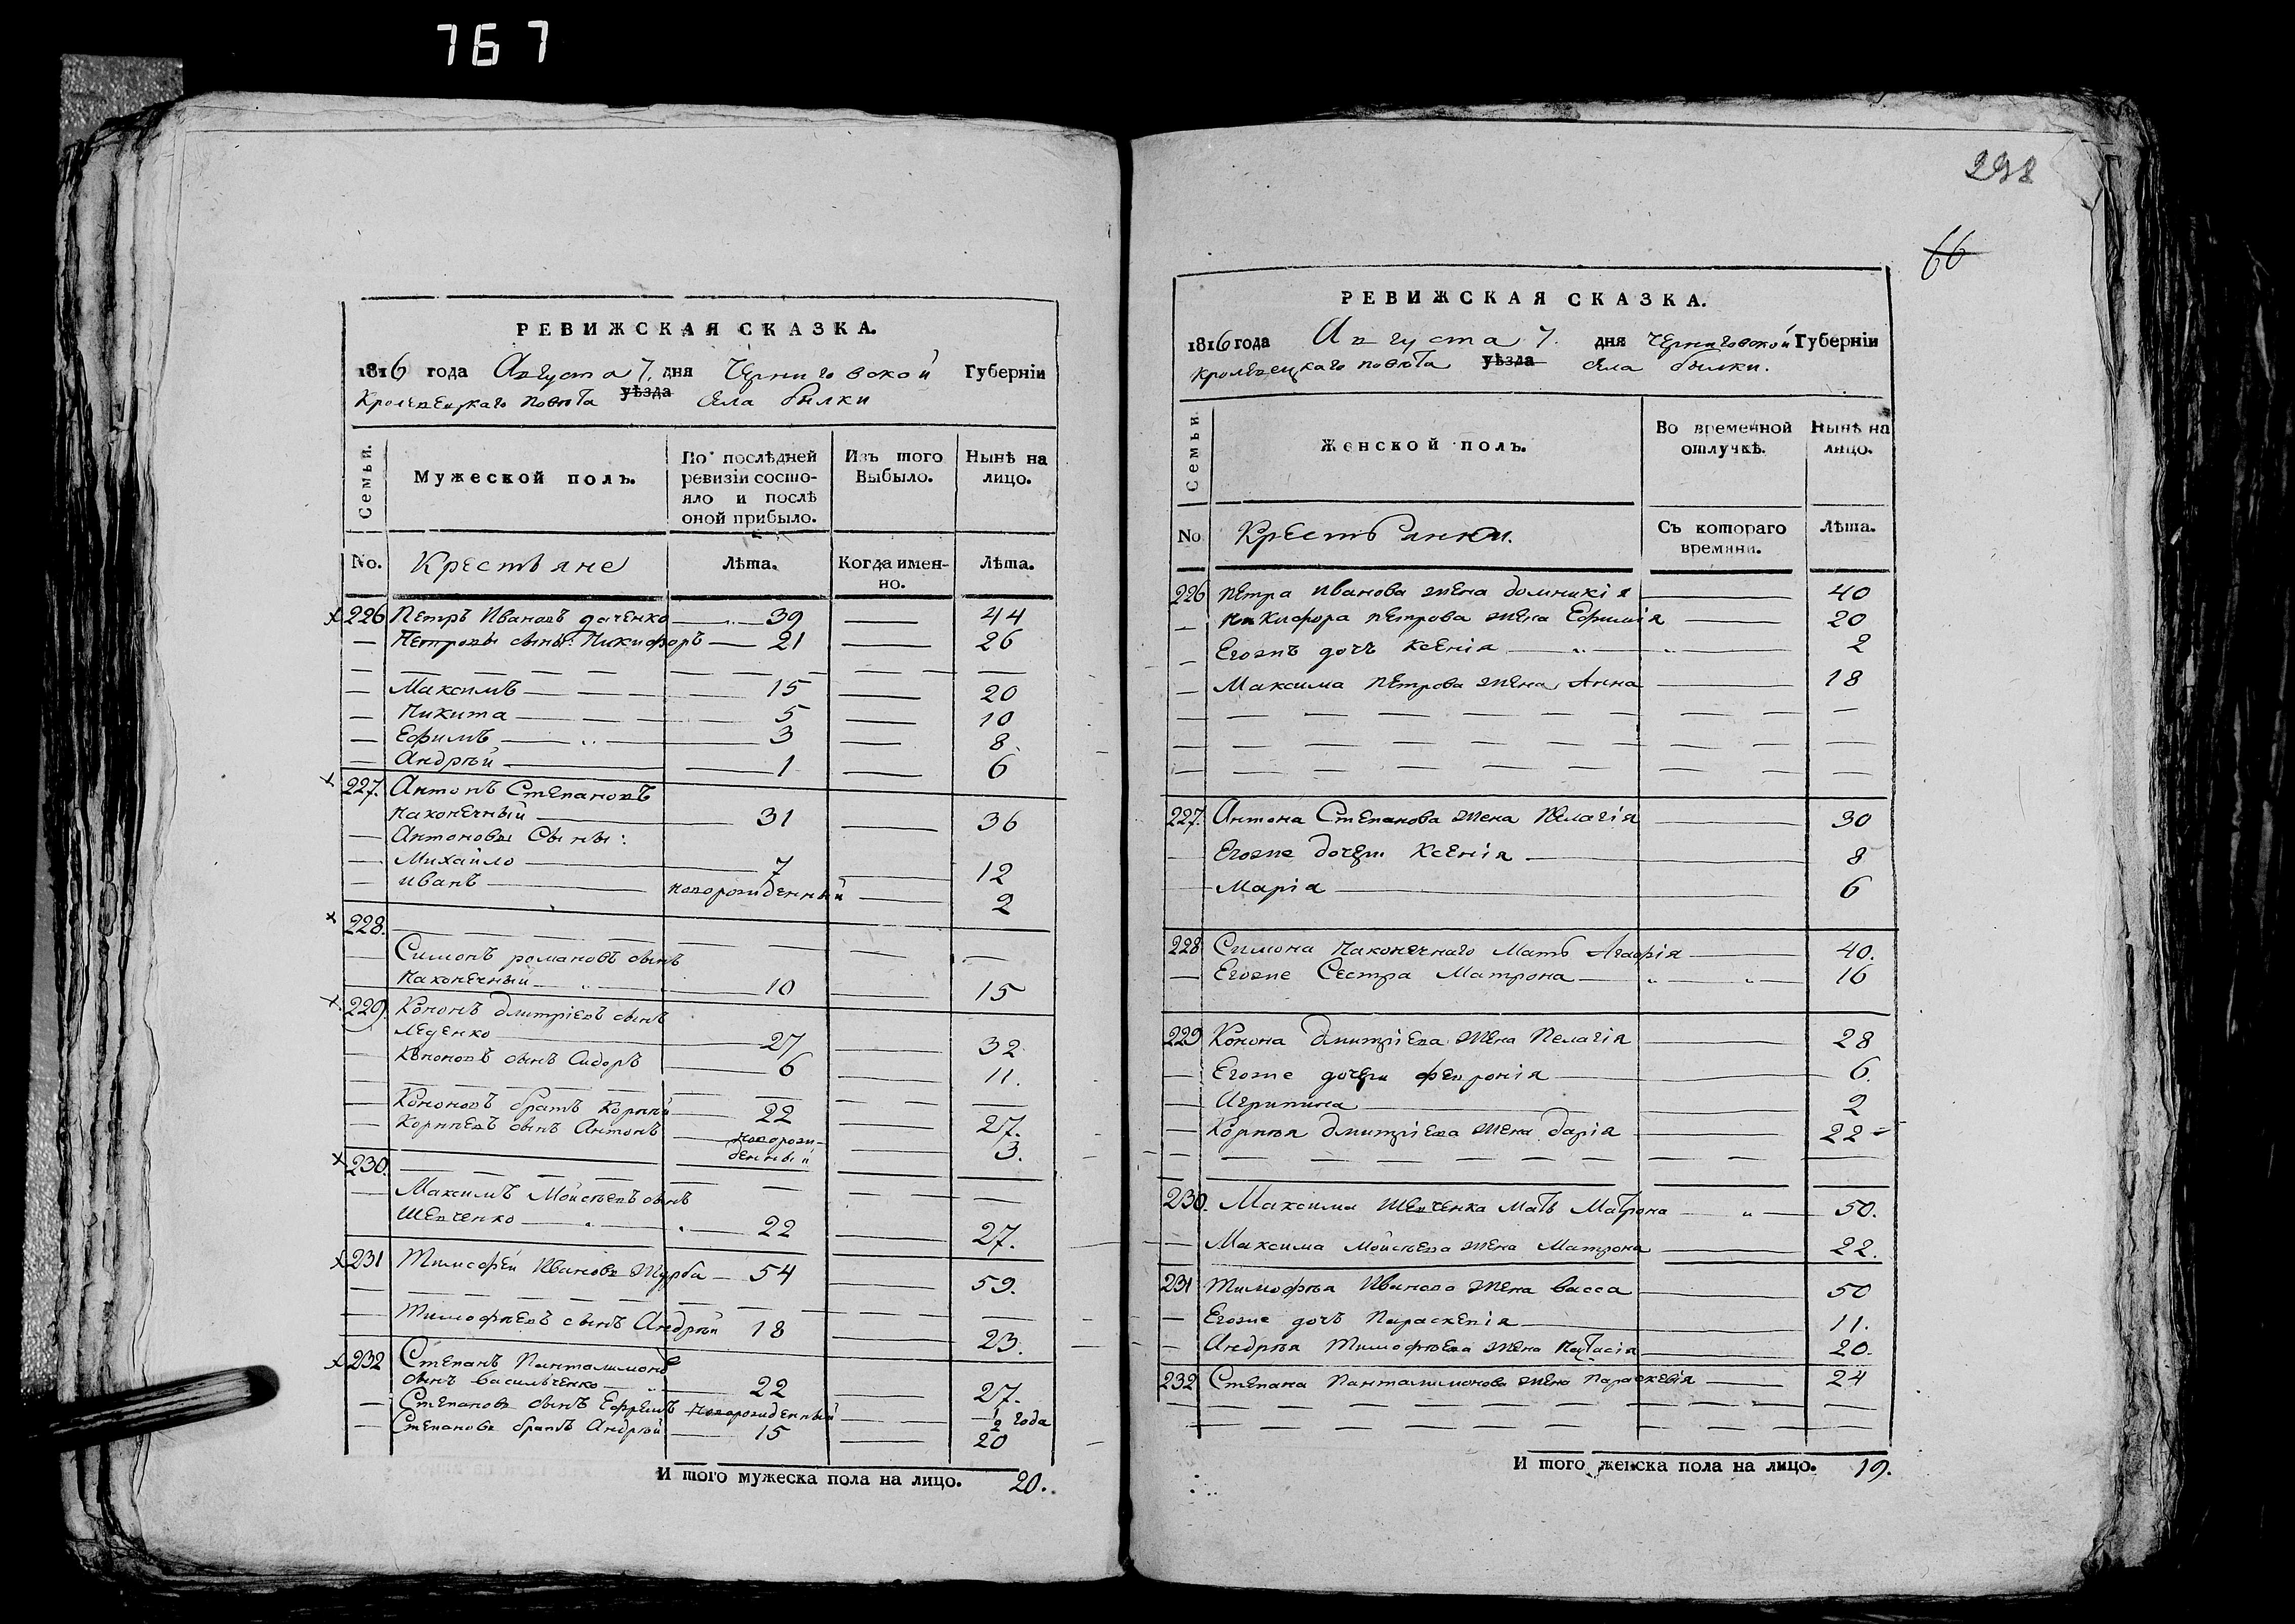 767
РЕВИЖСКАЯ СКАЗКА.
1816 года Августа 7. дня Черниговской Губерніи
Кролевецкаго повѣта уѣзда села Былки
Семьи.
Мужеской полъ.
По послѣдней ревизіи состояло и послѣ оной прибыло.
Изъ того Выбыло.
Нынѣ на лицо.
No. Крестьяне Лѣта. Когда именно. Лѣта.
226 Петръ Ивановъ 39 44
Петровы сыны: Никифоръ 21 26
Максимъ 15 20
Никита 5 10
Ефимъ 3 8
Андрѣй 1 6
227. Антонъ Степановъ
Наконечный 31 36
Антоновы Сыны:
Михайло 7 12
Иванъ новорожденный 2
228.
Симонъ романовъ сынъ
Наконечный 10 15
229 Кононъ Дмитріевъ сынъ
27 32
Кононовъ сынъ Сидоръ 6 11.
Кононовъ братъ Корнѣй 22 27.
Корнѣевъ сынъ Антонъ новорож-
денный 3.
230.
Максимъ Мойсѣевъ сынъ
Шевченко 22 27.
231 Тимофей Ивановъ Журба 54 59.
Тимофѣевъ сынъ Андрѣй 18 23.
232 Степанъ Панталимоновъ
сынъ Васильченко 22 27.
Степановъ сынъ Ефремъ новорожденный ½ года
Степановъ братъ Андрѣй 15 20
И того мужеска пола на лицо. 20.
298
66
РЕВИЖСКАЯ СКАЗКА.
1816 года Августа 7. дня Черниговской Губерніи
Кролевецкаго повѣта уѣзда села Былки.
Семьи
Женской полъ.
Во временной отлучкѣ.
Нынѣ на лицо.
No Крестьянки. Съ котораго времяни. Лѣта.
226 Петра Иванова жена Домникія 40
Никифора Петрова жена Ефимія 20
Егожъ дочь Ксенія 2
Максима Петрова жена Анна 18
227. Антона Степанова жена Пелагія 30
Егоже дочери Ксенія 8
Марія 6
228 Симона Наконечнаго Мать Агафія 40.
Егоже Сестра Матрона 16
229 Конона Дмитріева жена Пелагія 28
Егоже дочери Февронія 6.
Агрипина 2
Корнѣя Дмитріева жена Дарія 22
230. Максима Шевченка Мать Матрона 50.
Максима Мойсѣева жена Матрона 22.
231 Тимофѣя Иванова жена Васса 50
Егоже дочь Параскевія 11.
Андрѣя Тимофѣева жена 20.
232 Степана Панталимонова жена Параскевія 24
И того женска пола на лицо. 19.